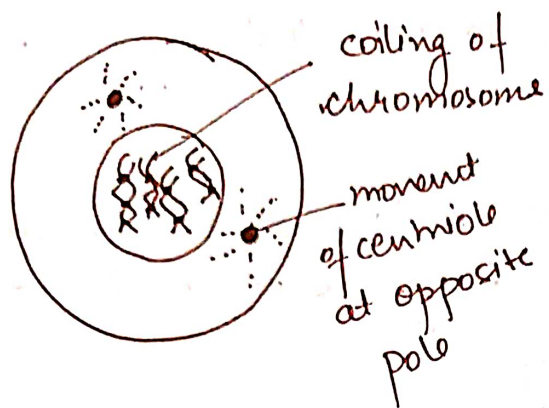 coiling of
chromosome
movemt
of centriole
at opposite
pole